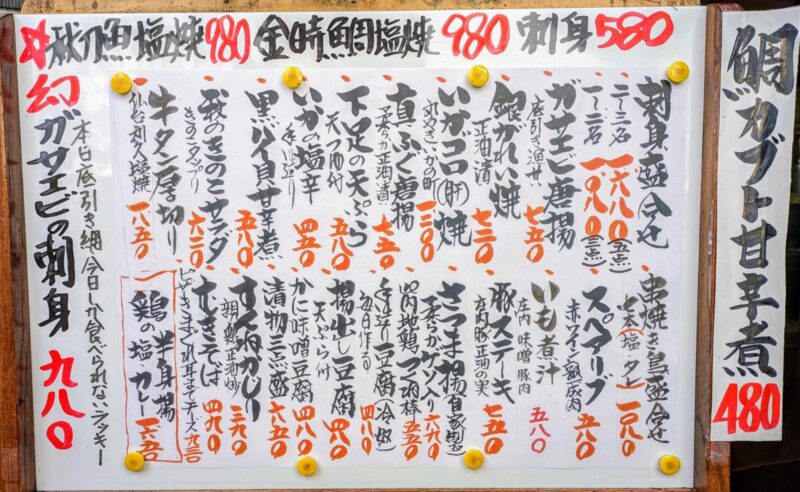 秋刀魚塩焼980 金時鯛塩焼980 刺身580
鯛カブト甘辛煮
480
刺身盛合せ
二〜三名 一六八〇(五点)
一〜二名 一〇八〇(三点)
ガサエビ唐揚
底引き漁せ 七五〇
銀がれい焼
正油漬 七五〇
いかゴロ(肝)焼
一二八〇
真ふぐ唐揚
柔らか正油漬 七五〇
下足の天ぷら
天つゆ付 五八〇
いかの塩辛
手作り 四五〇
黒バイ貝甘辛煮
五八〇
秋のきのこサラダ
きのこタップリ 六二〇
牛タン厚切り
仙台 塩焼 一八五〇
串焼き鳥盛合せ
七本(塩・タレ) 一〇八〇
スペアリブ
赤ワイン 豚肉 五八〇
いも煮汁
庄内 味噌 豚肉 五八〇
豚ステーキ
庄内豚正油の実 七五〇
さつま揚(自家製)
柔らかゲソ入り 六九〇
山内地鶏つみれ棒 五五〇
手作り豆腐(冷奴)
毎日作る 四八〇
揚出し豆腐
天ぷら付 四八〇
かに味噌豆腐 四八〇
漬物三点盛 六五〇
すんねかじり
三九〇
むきそば 四九〇
チーズ 九三〇
鶏の半身揚
塩・カレー
幻ガサエビの刺身 九八〇
本日底引き網今日しか食べられないラッキー